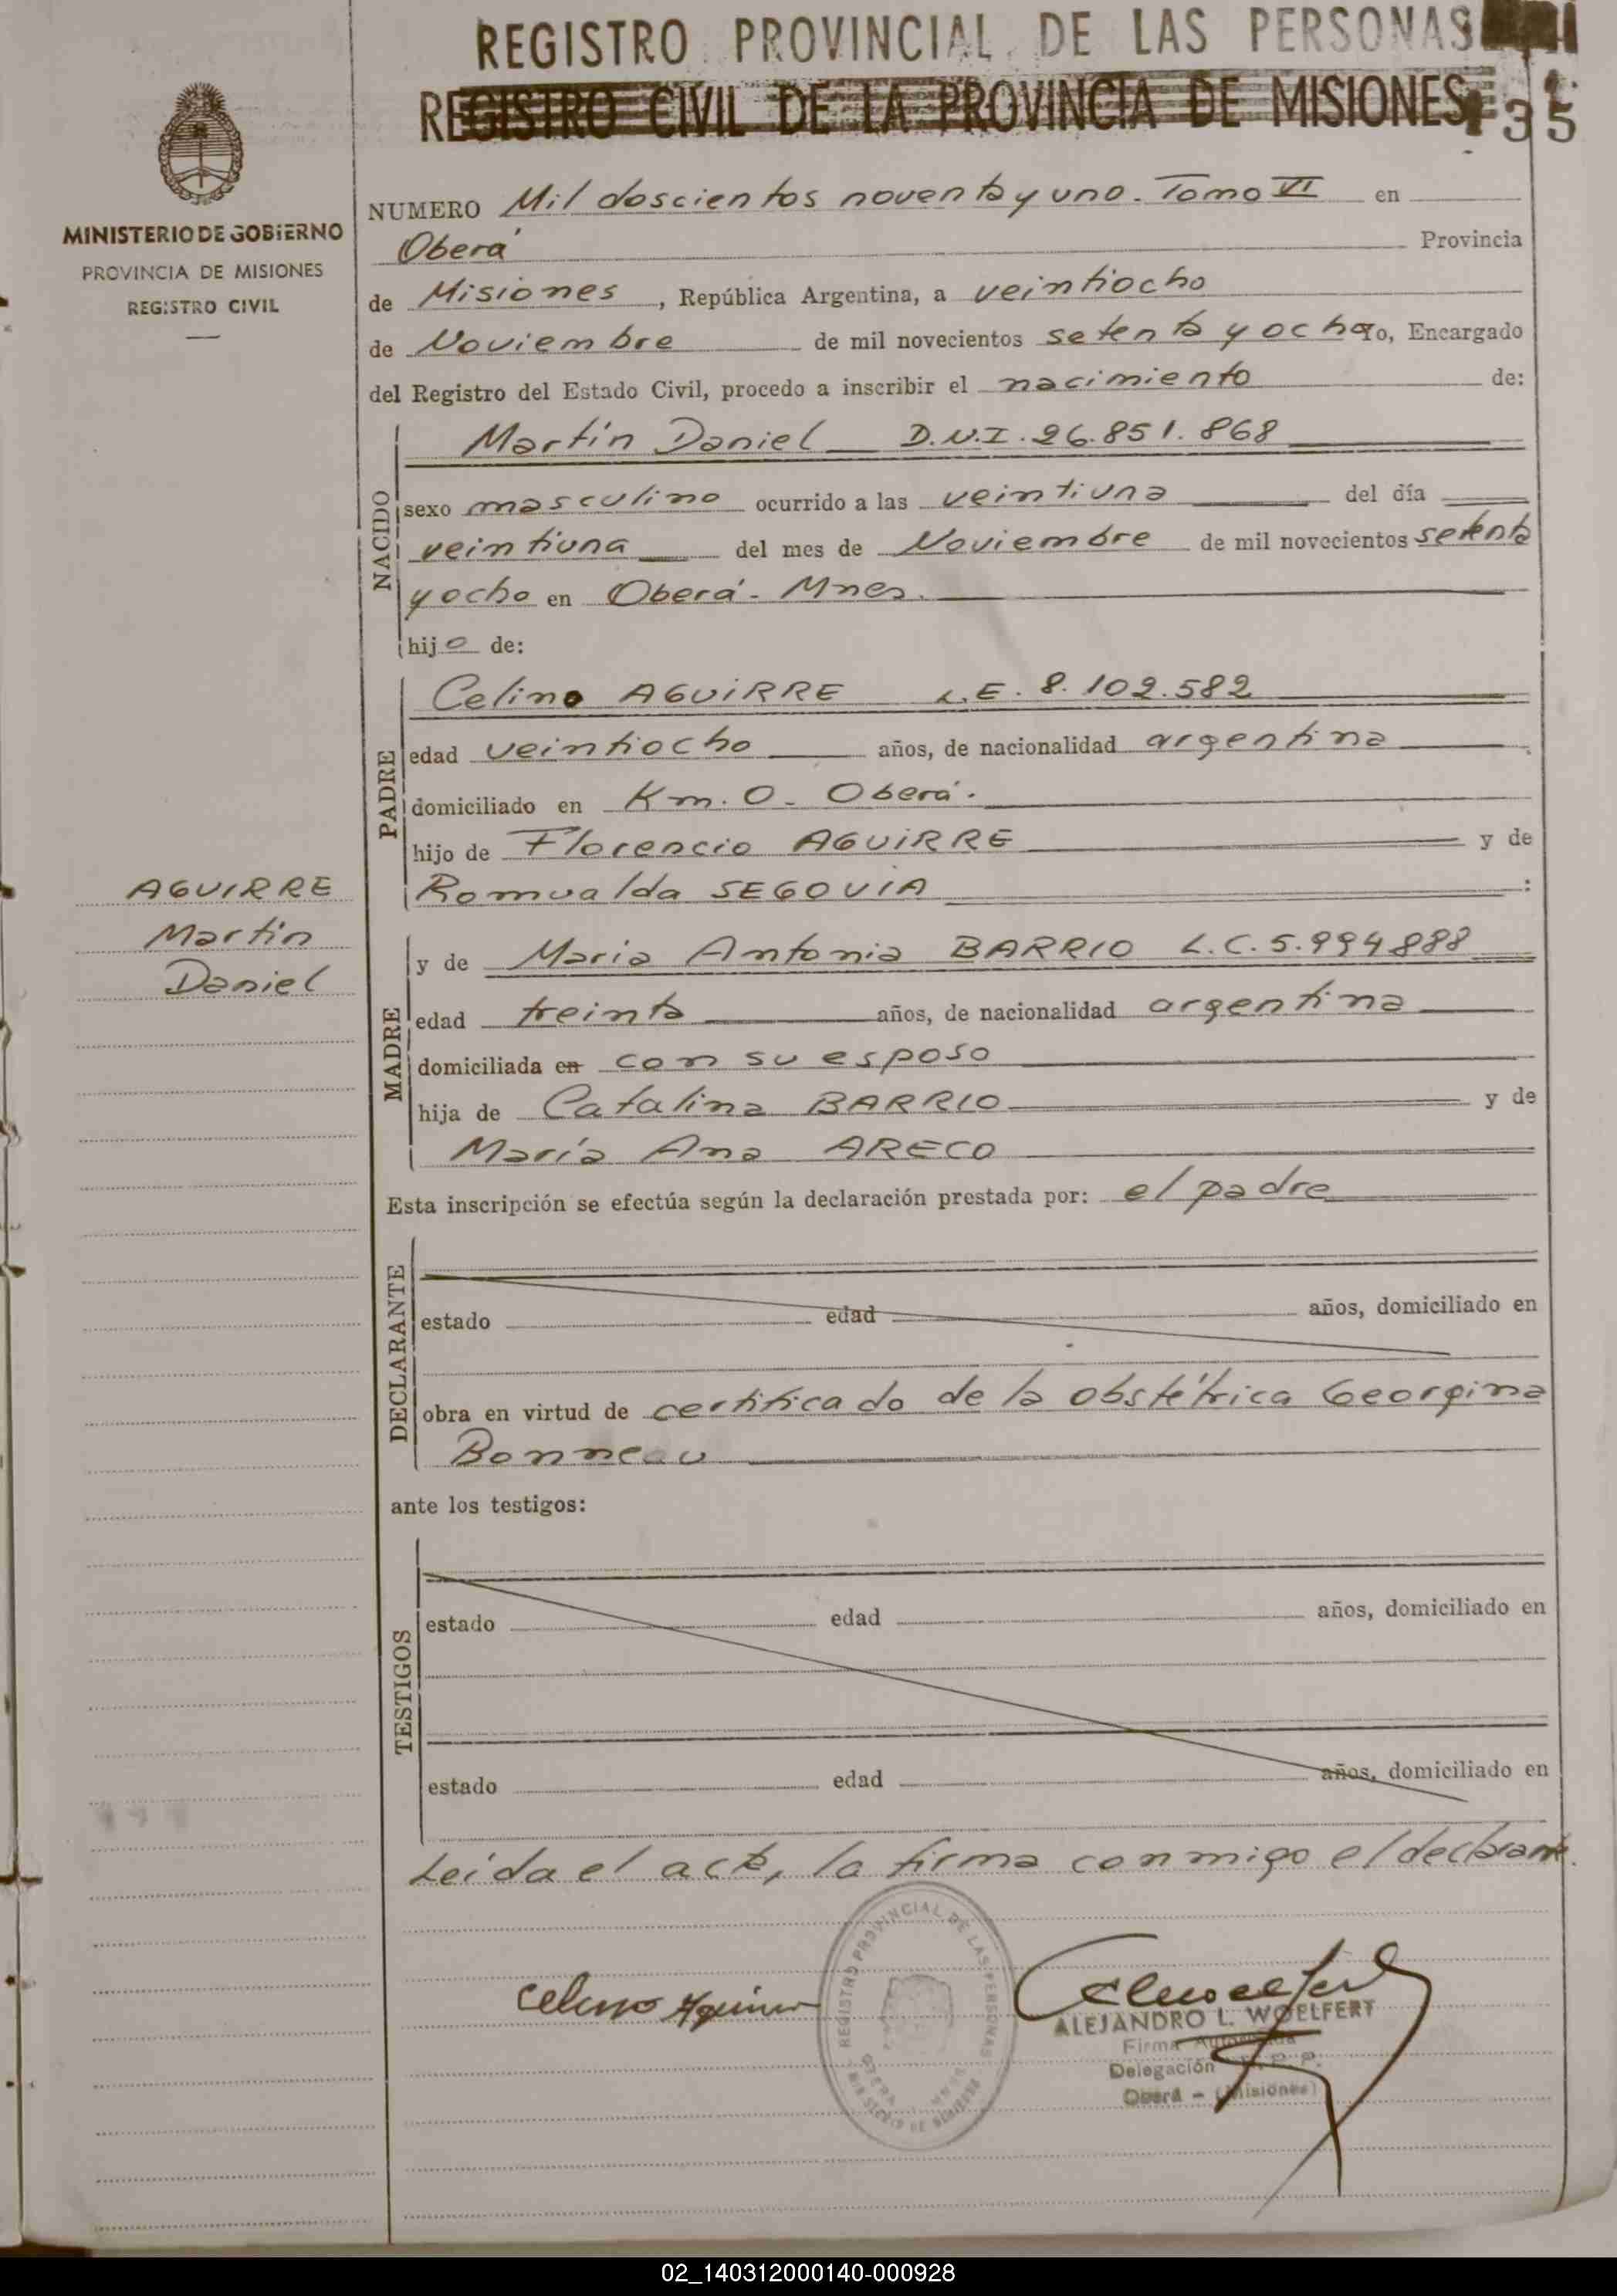 REGISTRO PROVINCIAL DE LAS PERSONAS
REGISTRO CIVIL DE LA PROVINCIA DE MISIONES
35
MINISTERIO DE GOBIERNO
PROVINCIA DE MISIONES
REGISTRO CIVIL
NUMERO Mil doscientos noventa y uno. Tomo VI en
Oberá Provincia
de Misiones, República Argentina, a veintiocho
de Noviembre de mil novecientos setenta y ocho, Encargado
del Registro del Estado Civil, procedo a inscribir el nacimiento de:
NACIDO
Martín Daniel D.N.I. 26.851.868
sexo masculino ocurrido a las veintiuna del día
veintiuna del mes de Noviembre de mil novecientos setenta
y ocho en Oberá - Mnes.
hijo de:
PADRE
Celino AGUIRRE L.E. 8.102.582
edad veintiocho años, de nacionalidad argentina
domiciliado en Km. 0 - Oberá.
hijo de Florencio AGUIRRE y de
Romualda SEGOVIA :
AGUIRRE
Martin
Daniel
MADRE
y de Maria Antonia BARRIO L.C. 5.994888
edad treinta años, de nacionalidad argentina
domiciliada en con su esposo
hija de Catalina BARRIO y de
María Ana ARECO
Esta inscripción se efectúa según la declaración prestada por: el padre
DECLARANTE
estado edad años, domiciliado en
obra en virtud de certificado de la obstétrica Georgina
Bonneau
ante los testigos:
TESTIGOS
estado edad años, domiciliado en
estado edad años, domiciliado en
Leída el acta, la firma conmigo el declarante.
REGISTRO PROVINCIAL DE LAS PERSONAS
ALEJANDRO L. WOELFERT
Firma Autorizada
Delegación R. P. P.
Oberá - (Misiones)
02_140312000140-000928